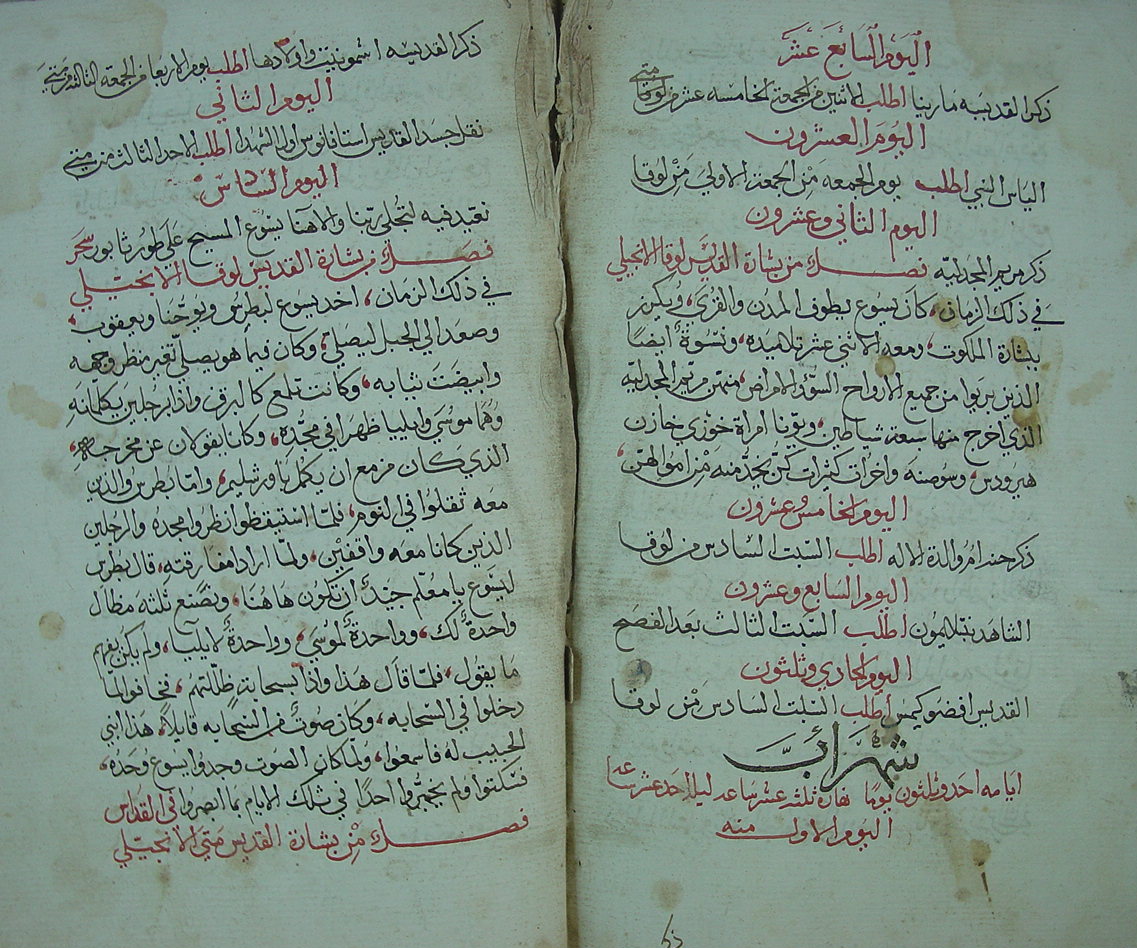 اليوم السابع عشر
ذكر القديسه مارينا اطلب الاثنين من الجمعة الخامسه عشر من لوقا متى
اليوم العشرون
الياس النبي اطلب يوم الجمعه من الجمعة الاولى من لوقا
اليوم الثاني وعشرون
ذكر مريم المجدليه فصل من بشارة القديس لوقا الانجيلي
في ذلك الزمان، كان يسوع يطوف المدن والقرى، ويكرز
ببشارة الملكوت، ومعه الاثني عشر تلاميذه، ونسوة ايضا
الذين بريوا من جميع الارواح السؤ والامراض، منهن مريم المجدليه
الذي اخرج منها سبعة شياطين، ويونا امراة خوزي خازن
هيرودس، وسوسنه واخرات كثيرات كن يخدمنه من اموالهن،
اليوم الخامس وعشرون
ذكر حنه ام والدة الاله اطلب السبت السادس من لوقا
اليوم السابع وعشرون
الشاهد بنتلايمون اطلب السبت الثالث بعد الفصح
اليوم الحادي وثلثون
القديس افضوكيمس اطلب السبت السادس من لوقا
شهر ابّ
ايامه احد وثلثون يوما نهاره ثلثة عشر ساعه ليله احد عشر ساعه
اليوم الاول منه
ذكر
ذكر القديسه اشمونيت واولادها اطلب يوم الاربعا من الجمعه الثالثه من متى
اليوم الثاني
نقل جسد القديس استافانوس اول الشهدا اطلب الاحد الثالث من متى
اليوم السادس
نعيد فيه لتجلي ربنا والاهنا يسوع المسيح على طور ثابور سحر
فصل من بشارة القديس لوقا الانجيلي
في ذلك الزمان، اخد يسوع لبطرس ويوحنا ويعقوب،
وصعد الي الجبل ليصلي، وكان فيما هو يصلي تغير منظر وجهه
وابيضت ثيابه، وكانت تلمع كالبرق واذا رجلين يكلمانه
وهما موسى وايليا ظهرا في مجده، وكانا يقولان عن مخرجه
الذي كان مزمع ان يكمل باورشليم، واما بطرس والذين
معه ثقلوا في النوم، فلما استيقظوا نظروا مجده والرجلين
الذين كانا معه واقفين، ولما ارادا مفارقته، قال بطرس
ليسوع يا معلم جيد ان نكون هاهنا، ونصنع ثلثة مظال
واحدة لك، وواحدة لموسى، وواحدة لايليا، ولم يكن يفهم
ما يقول، فلما قال هذا واذا بسحابة ظللتهم، فخافوا لما
دخلوا في السحابه، وكان صوت من السحابه قايلا، هذا ابني
الحبيب له فاسمعوا، ولما كان الصوت وجدوا يسوع وحده،
فسكتوا ولم يخبروا احدا في تلك الايام بما ابصروا في القداس
فصل من بشارة القديس متى الانجيلي